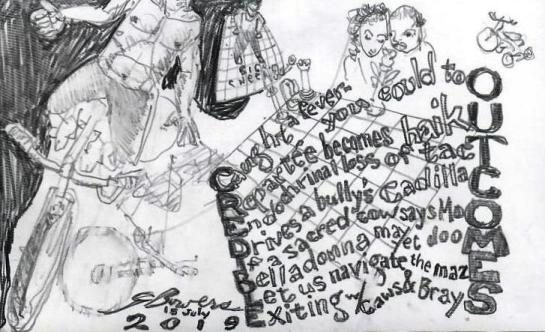 Caught a fever you could toO
Repartee becomes haikU
Endochrinal loss of tacT
Drives a bully's CadillaC
If a sacred cow says MoO
Belladonna may yet dooM
Let us navigate the mazE
Exiting w/ Caws & BrayS
Bowers
15 July
2019